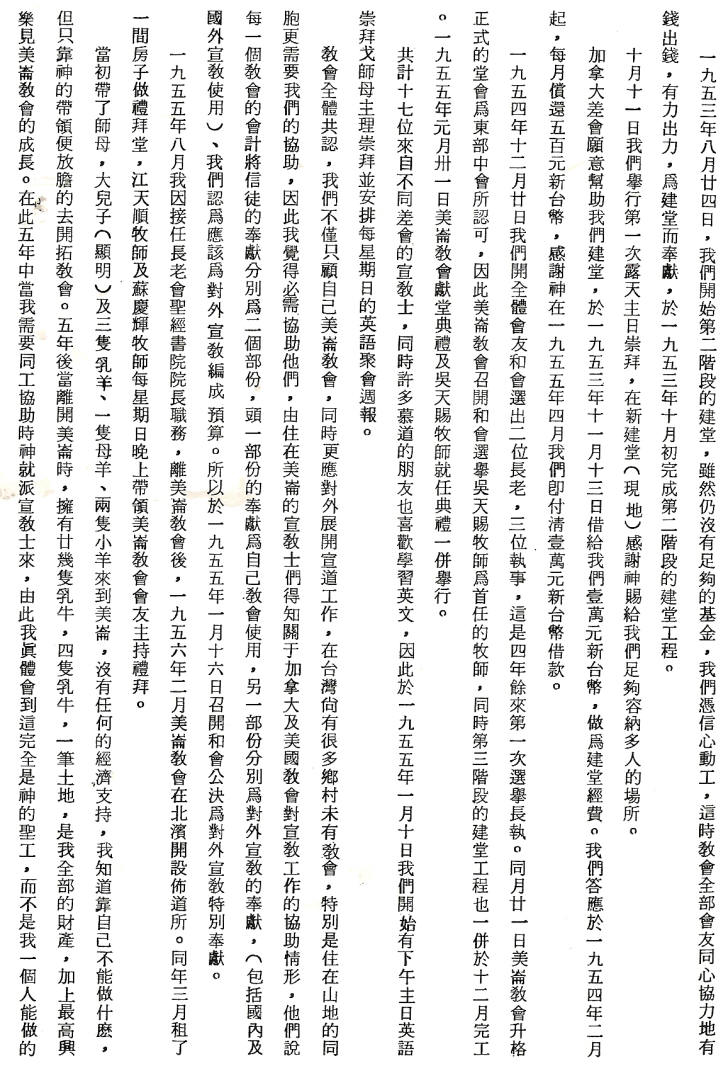 一九五三年八月廿四日，我們開始第二階段的建堂，雖然仍沒有足夠的基金，我們憑信心動工，這時教會全部會友同心協力地有
錢出錢，有力出力，爲建堂而奉獻，於一九五三年十月初完成第二階段的建堂工程。
十月十一日我們舉行第一次露天主日崇拜，在新建堂（現地）感謝神賜給我們足夠容納多人的場所。
加拿大差會願意幫助我們建堂，於一九五三年十一月十三日借給我們壹萬元新台幣，做爲建堂經費。我們答應於一九五四年二月
起，每月償還五百元新台幣，感謝神在一九五五年四月我們卽付清壹萬元新台幣借款。
一九五四年十二月廿日我們開全體會友和會選出二位長老，三位執事，這是四年餘來第一次選舉長執。同月廿一日美崙教會升格
正式的堂會爲東部中會所認可，因此美崙教會召開和會選舉吳天賜牧師爲首任的牧師，同時第三階段的建堂工程也一併於十二月完工
。一九五五年元月卅一日美崙教會獻堂典禮及吳天賜牧師就任典禮一併舉行。
共計十七位來自不同差會的宣教士，同時許多慕道的朋友也喜歡學習英文，因此於一九五五年一月十日我們開始有下午主日英語
崇拜戈師母主理崇拜並安排每星期日的英語聚會週報。
教會全體共認，我們不僅只顧自己美崙教會，同時更應對外展開宣道工作，在台灣尙有很多鄉村未有教會，特別是住在山地的同
胞更需要我們的協助，因此我覺得必需協助他們，由住在美崙的宣教士們得知關于加拿大及美國教會對宣教工作的協助情形，他們說
每一個教會的會計將信徒的奉獻分別爲二個部份，頭一部份的奉獻爲自己教會使用，另一部份分別爲對外宣教的奉獻，（包括國內及
國外宣教使用）、我們認爲應該爲對外宣教編成預算。所以於一九五五年一月十六日召開和會公決爲對外宣教特別奉獻。
一九五五年八月我因接任長老會聖經書院院長職務，離美崙教會後，一九五六年二月美崙教會在北濱開設佈道所。同年三月租了
一間房子做禮拜堂，江天順牧師及蘇慶輝牧師每星期日晚上帶領美崙教會會友主持禮拜。
當初帶了師母，大兒子（顯明）及三隻乳羊、一隻母羊、兩隻小羊來到美崙，沒有任何的經濟支持，我知道靠自己不能做什麽，
但只靠神的帶領便放膽的去開拓教會。五年後當離開美崙時，擁有廿幾隻乳牛，四隻乳牛，一筆土地，是我全部的財產，加上最高興
樂見美崙教會的成長。在此五年中當我需要同工協助時神就派宣教士來，由此我眞體會到這完全是神的聖工，而不是我一個人能做的